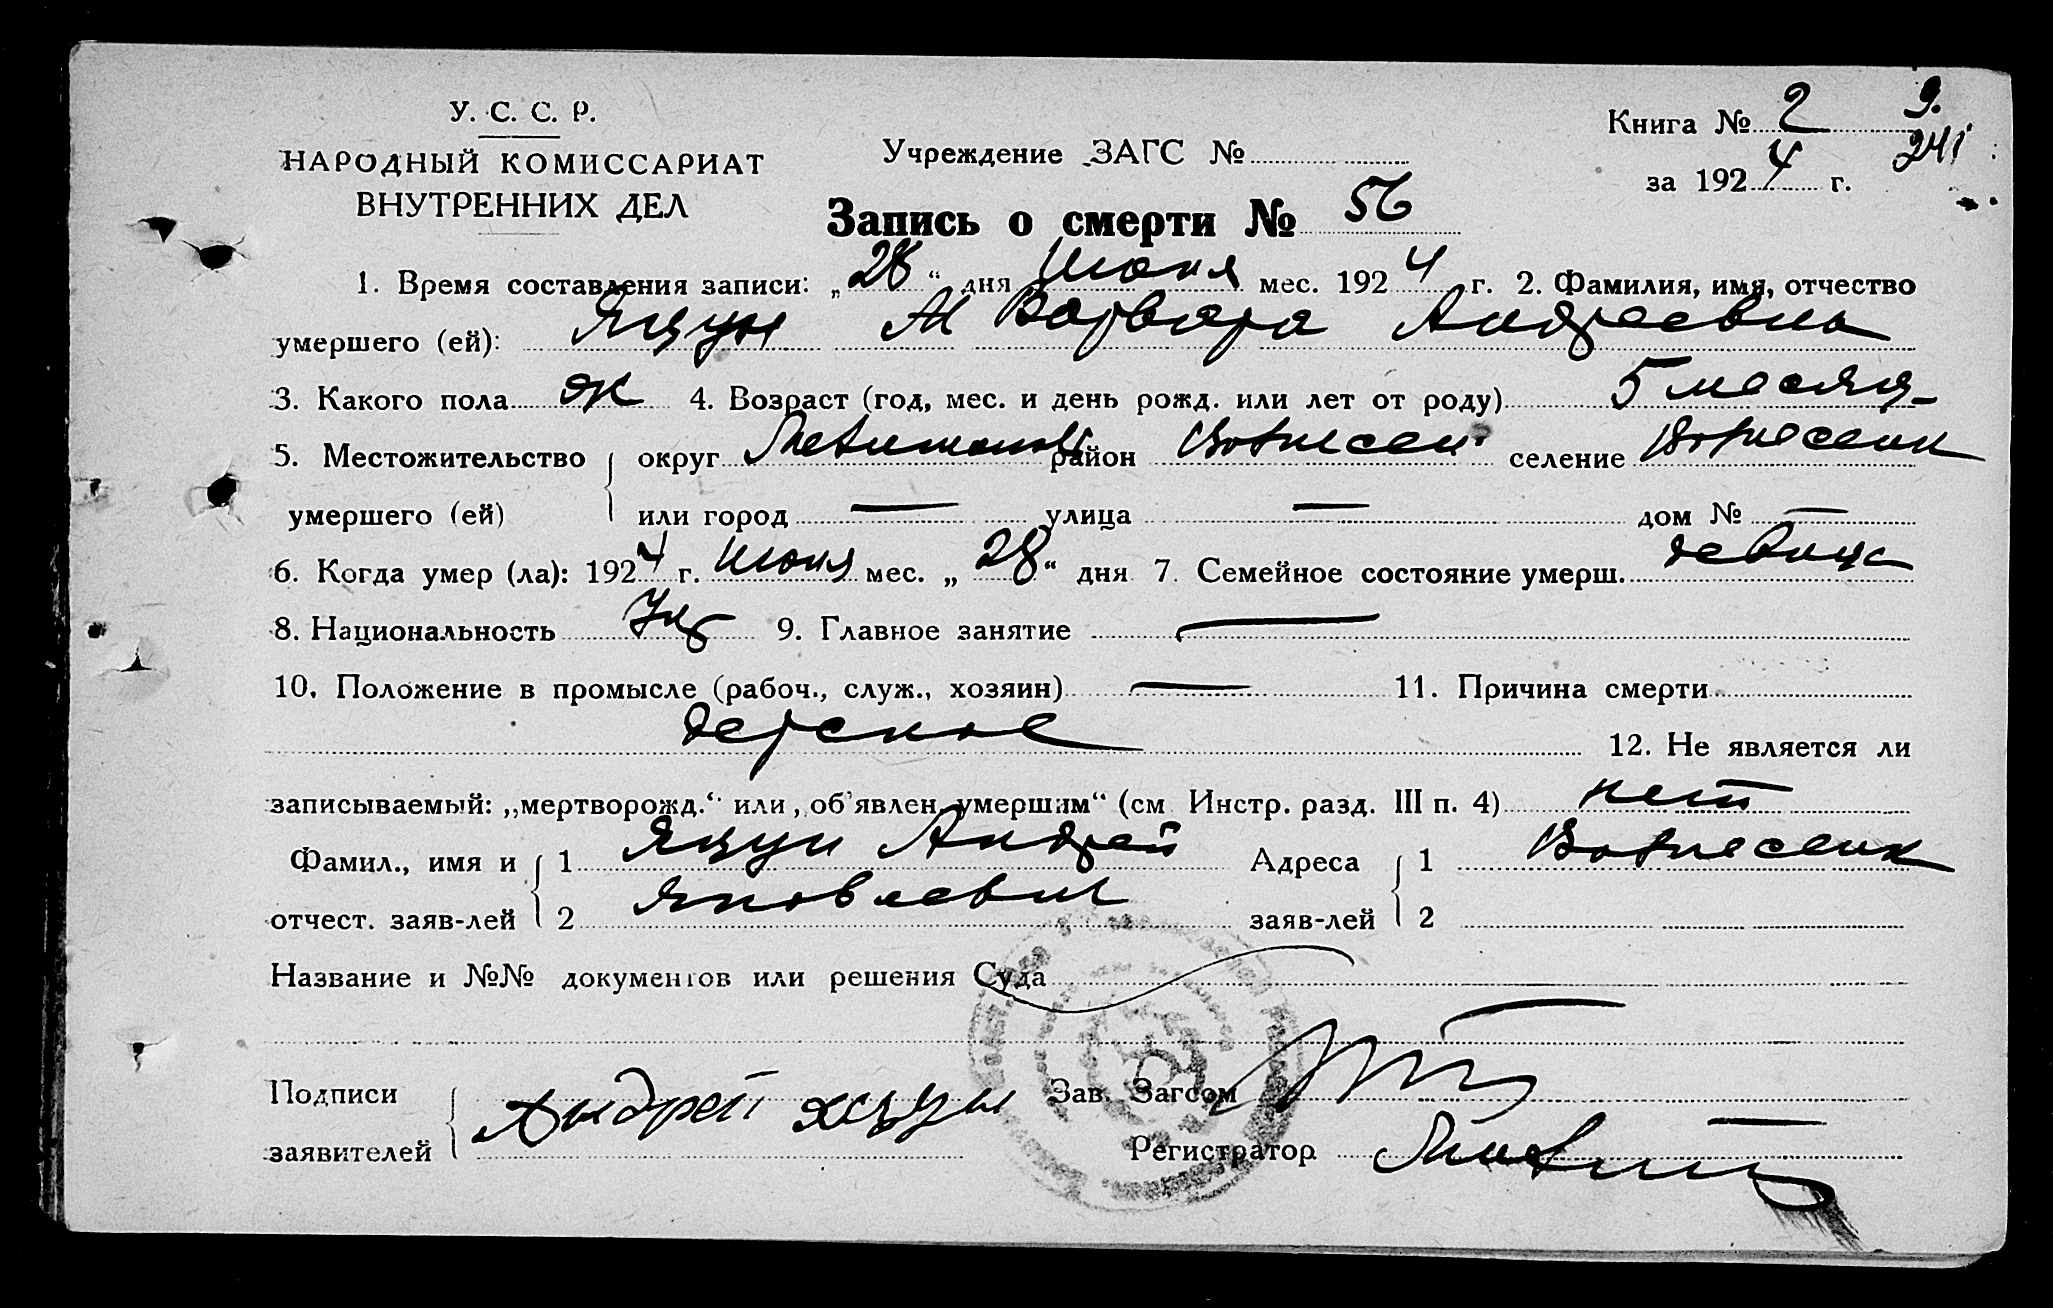 У. С. С. Р.
НАРОДНЫЙ КОМИССАРИАТ
ВНУТРЕННИХ ДЕЛ
Учреждение ЗАГС №
Книга № 2 9.
за 1924 г. 241
Запись о смерти № 56
1. Время составления записи: „28“ дня Июня мес. 1924 г. 2. Фамилия, имя, отчество
умершего (ей): Яцун Варвара Андреевна
3. Какого пола ж 4. Возраст (год, мес. и день рожд. или лет от роду) 5 месяц
5. Местожительство умершего (ей) округ район Вознесен селение Вознесенк
или город — улица — дом № —
6. Когда умер (ла): 1924 г. Июня мес. „28“ дня 7. Семейное состояние умерш. девица
8. Национальность Укр 9. Главное занятие —
10. Положение в промысле (рабоч., служ., хозяин) — 11. Причина смерти
детское
12. Не является ли
записываемый: „мертворожд.“ или „об'явлен. умершим“ (см Инстр. разд. III п. 4) нет
Фамил., имя и отчест. заяв-лей 1 Яцун Андрей Адреса заяв-лей 1 Вознесенк
2 Яковлевич 2
Название и №№ документов или решения Суда
Подписи заявителей Андрей Яцун Зав. Загсом
Регистратор